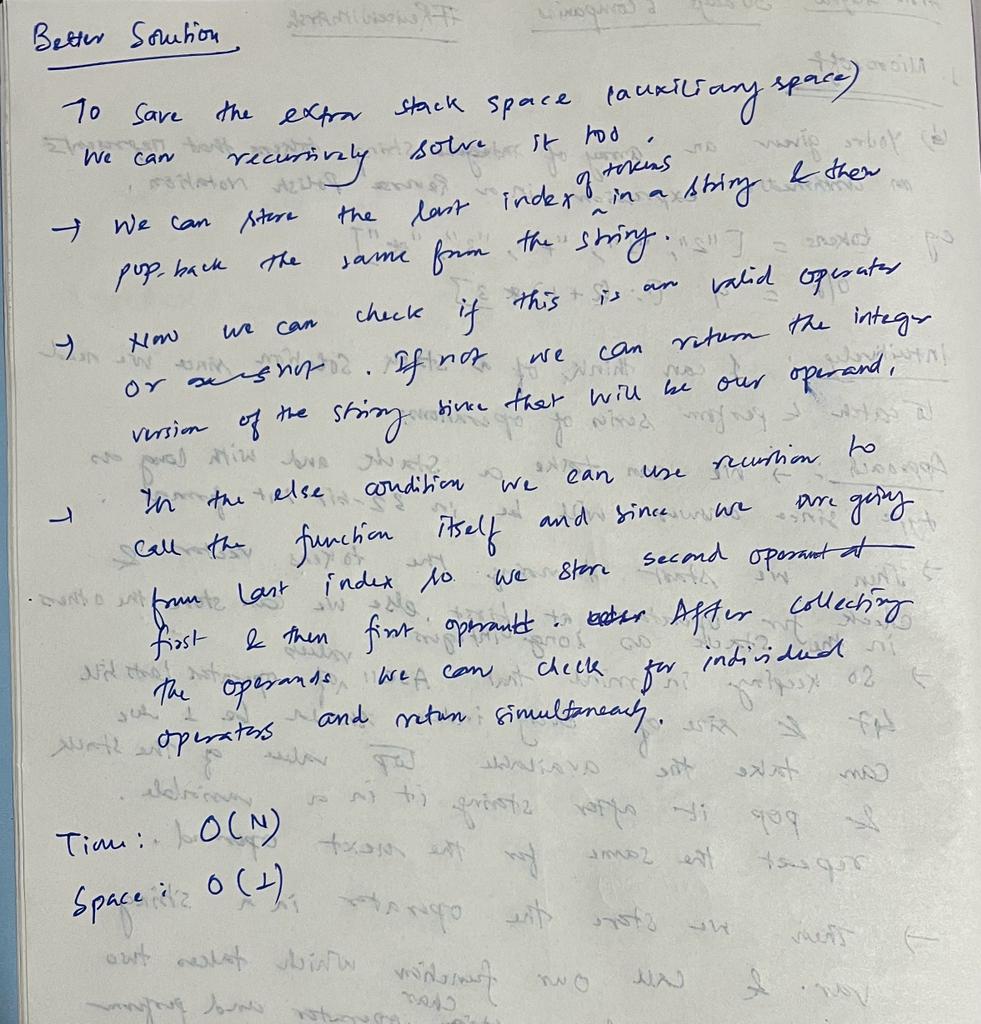 Better Solution
To save the extra stack space (auxiliary space)
we can recursively solve it too.
→ We can store the last index of tokens in a string & then
pop-back the same from the string.
→ Now we can check if this is an valid operator
or not. If not we can return the integer
version of the string since that will be our operand.
→ In the else condition we can use recursion to
call the function itself and since we are going
from last index so we store second operand at
first & then first operand. After collecting
the operands we can check for individual
operators and return simultaneously.
Time: O(N)
Space: O(1)